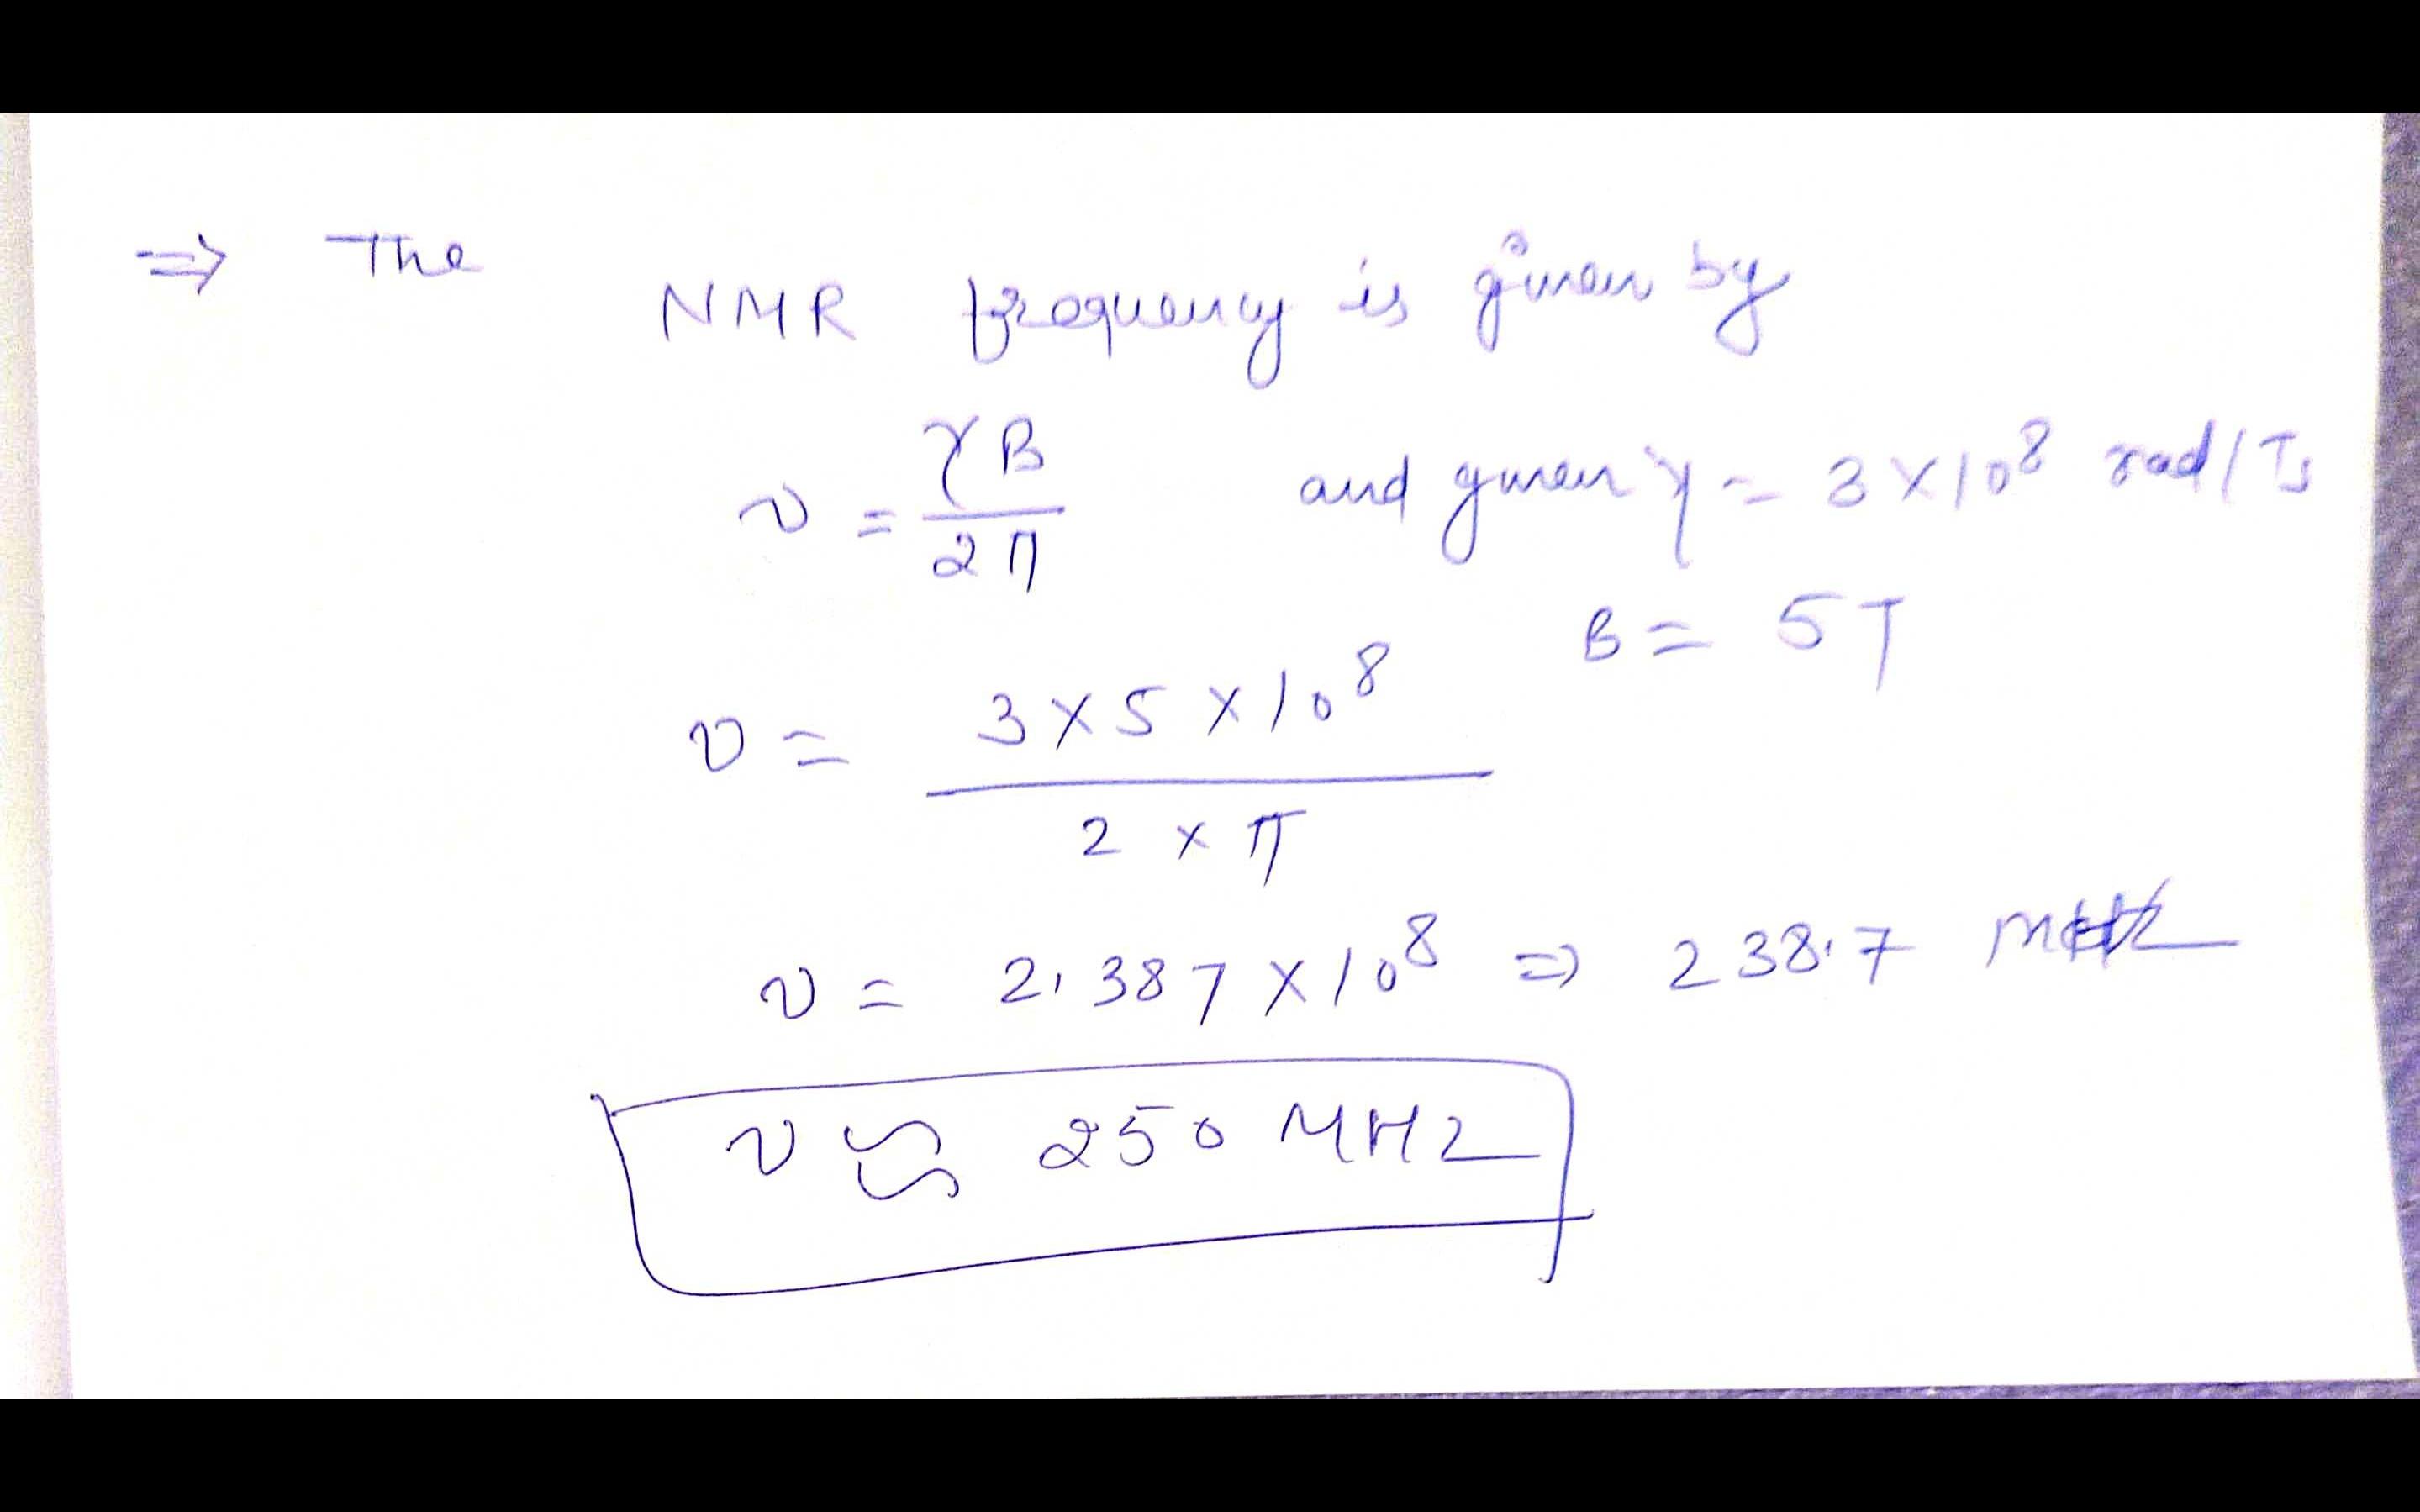 ⇒ The NMR frequency is given by
ν = γB / 2π and given γ = 3 × 10⁸ rad/Ts
B = 5T
ν = 3 × 5 × 10⁸ / 2 × π
ν = 2.387 × 10⁸ ⇒ 238.7 MHz
ν ≈ 250 MHz